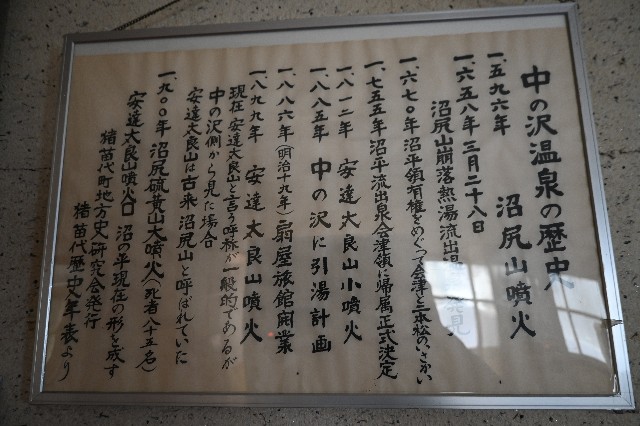 中の沢温泉の歴史
一、五九六年 沼尻山噴火
一、六五八年 三月二十八日
沼尻山崩落熱湯流出湯 発見
一、六七〇年沼平領有権をめぐって会津と二本松のいさかい
一、七五五年沼平流出泉会津領に帰属正式決定
一、八一二年 安達太良山小噴火
一、八八五年 中の沢に引湯計画
一、八八六年(明治十九年)扇屋旅館開業
一、八九九年 安達太良山噴火
現在 安達太良山と言う呼称が一般的であるが
中の沢側から見た場合
安達太良山は古来 沼尻山と呼ばれていた
一、九〇〇年 沼尻硫黄山大噴火(死者八十五名)
安達太良山噴火口 沼の平現在の形を成す
猪苗代町地方史研究会発行
猪苗代歴史年表より